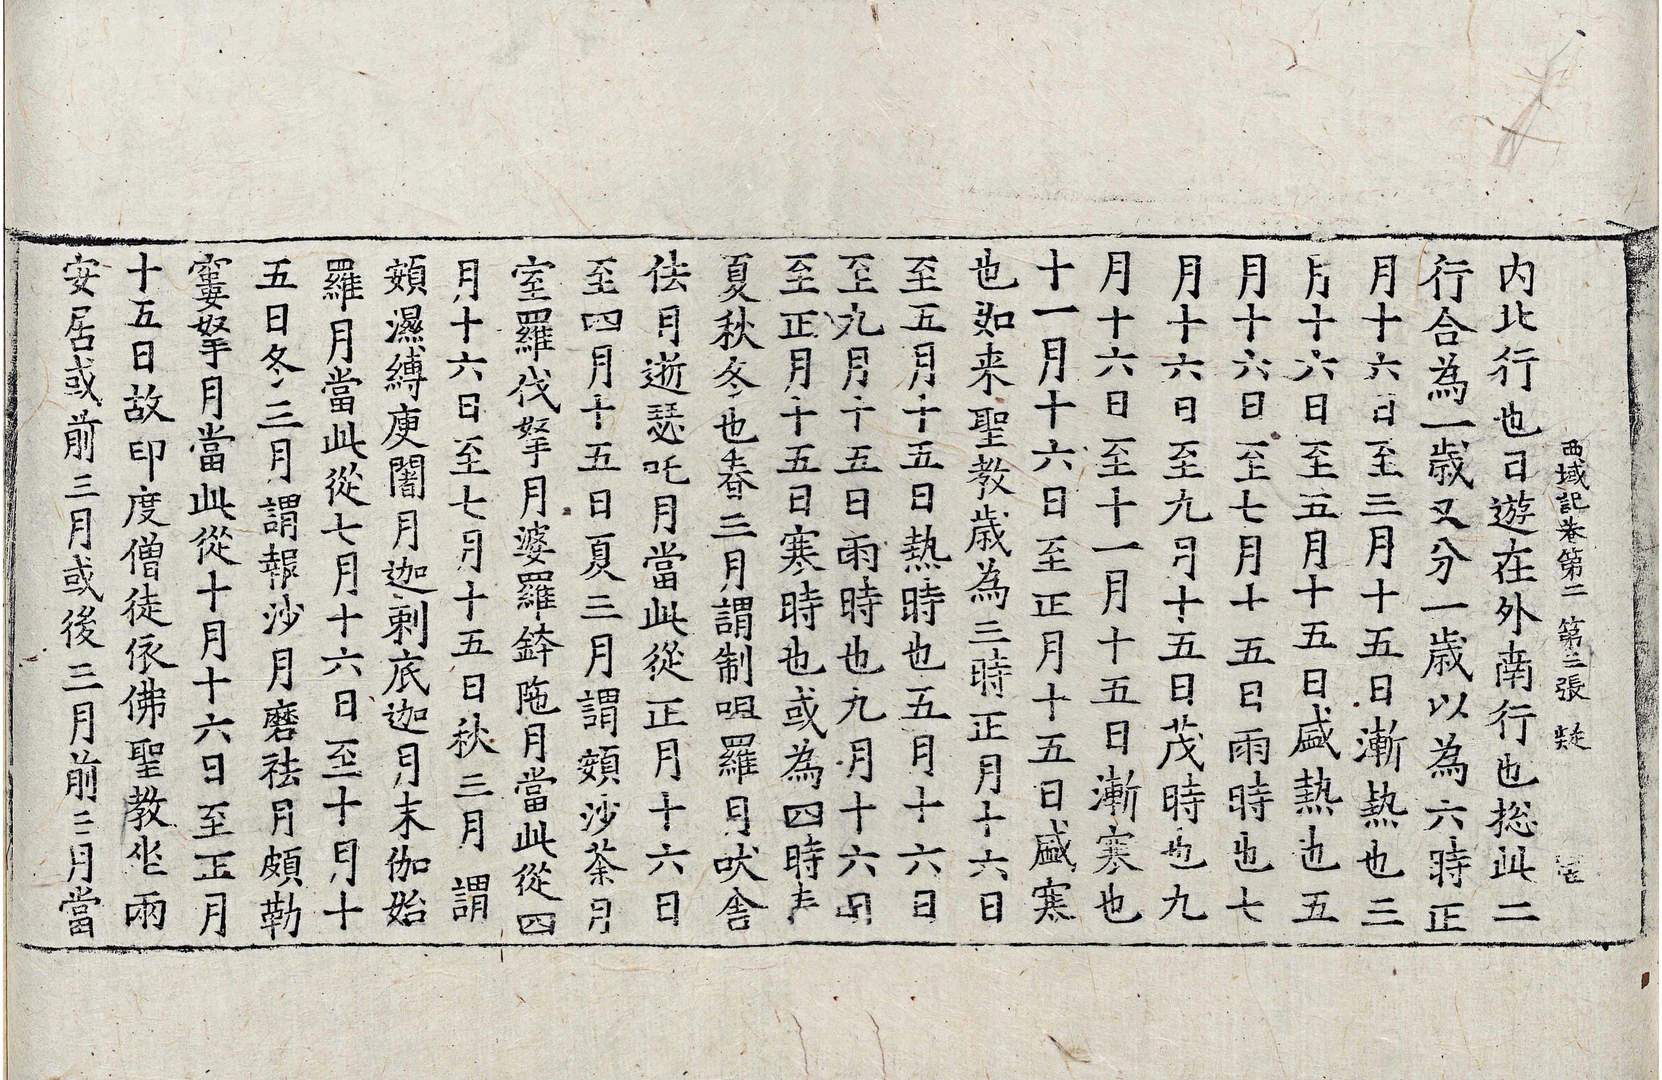 西域記卷第二 第三張 疑
内北行也日遊在外南行也捴此二
行合為一歳又分一歳以為六時正
月十六日至三月十五日漸熱也三
月十六日至五月十五日盛熱也五
月十六日至七月十五日雨時也七
月十六日至九月十五日茂時也九
月十六日至十一月十五日漸寒也
十一月十六日至正月十五日盛寒
也如来聖教歳為三時正月十六日
至五月十五日熱時也五月十六日
至九月十五日雨時也九月十六日
至正月十五日寒時也或為四時春
夏秋冬也春三月謂制呾羅月吠舎
佉月逝瑟吒月當此從正月十六日
至四月十五日夏三月謂頞沙荼月
室羅伐拏月婆羅鉢陁月當此從四
月十六日至七月十五日秋三月謂
頞濕縛庾闍月迦剌底迦月末伽始
羅月當此從七月十六日至十月十
五日冬三月謂報沙月磨祛月頗勒
窶拏月當此從十月十六日至正月
十五日故印度僧徒依佛聖教坐雨
安居或前三月或後三月前三月當